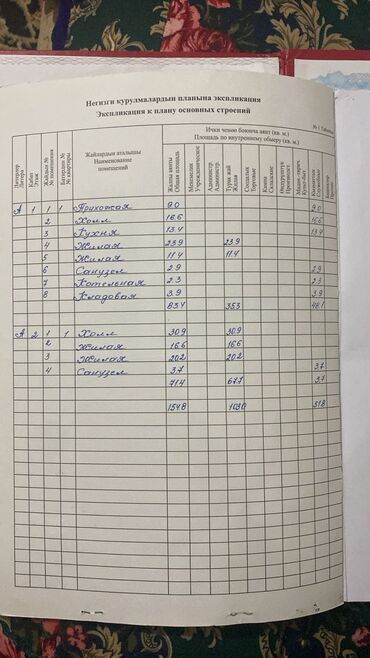 Негизги курулмалардын планына экспликация
Экспликация к плану основных строений
№ 1 Таблица
Литерлер
Литера
Кабат
Этаж
Жайдын №
№ помещения
Батирдин №
№ квартиры
Жайлардын аталышы
Наименование
помещений
Ички ченөө боюнча аянт (кв. м.)
Площадь по внутреннему обмеру (кв. м.)
Жалпы аянты
Общая площадь
Мекемелик
Учрежденческое
Администр.
Администр.
Турак жай
Жилая
Соодалык
Торговые
Кампа
Складские
Өндүрүштүк
Производст.
Көмөкчү
Прочие
А 1 1 1 Прихожая 9.0 9.0
2 Холл 16.6 16.6
3 Кухня 13.4 13.4
4 Жилая 23.9 23.9
5 Жилая 11.4 11.4
6 Санузел 2.9 2.9
7 Котельная 2.3 2.3
8 Кладовая 3.9 3.9
83.4 35.3 48.1
А 2 1 1 Холл 30.9 30.9
2 Жилая 16.6 16.6
3 Жилая 20.2 20.2
4 Санузел 3.7 3.7
71.4 67.7 3.7
154.8 103.0 51.8